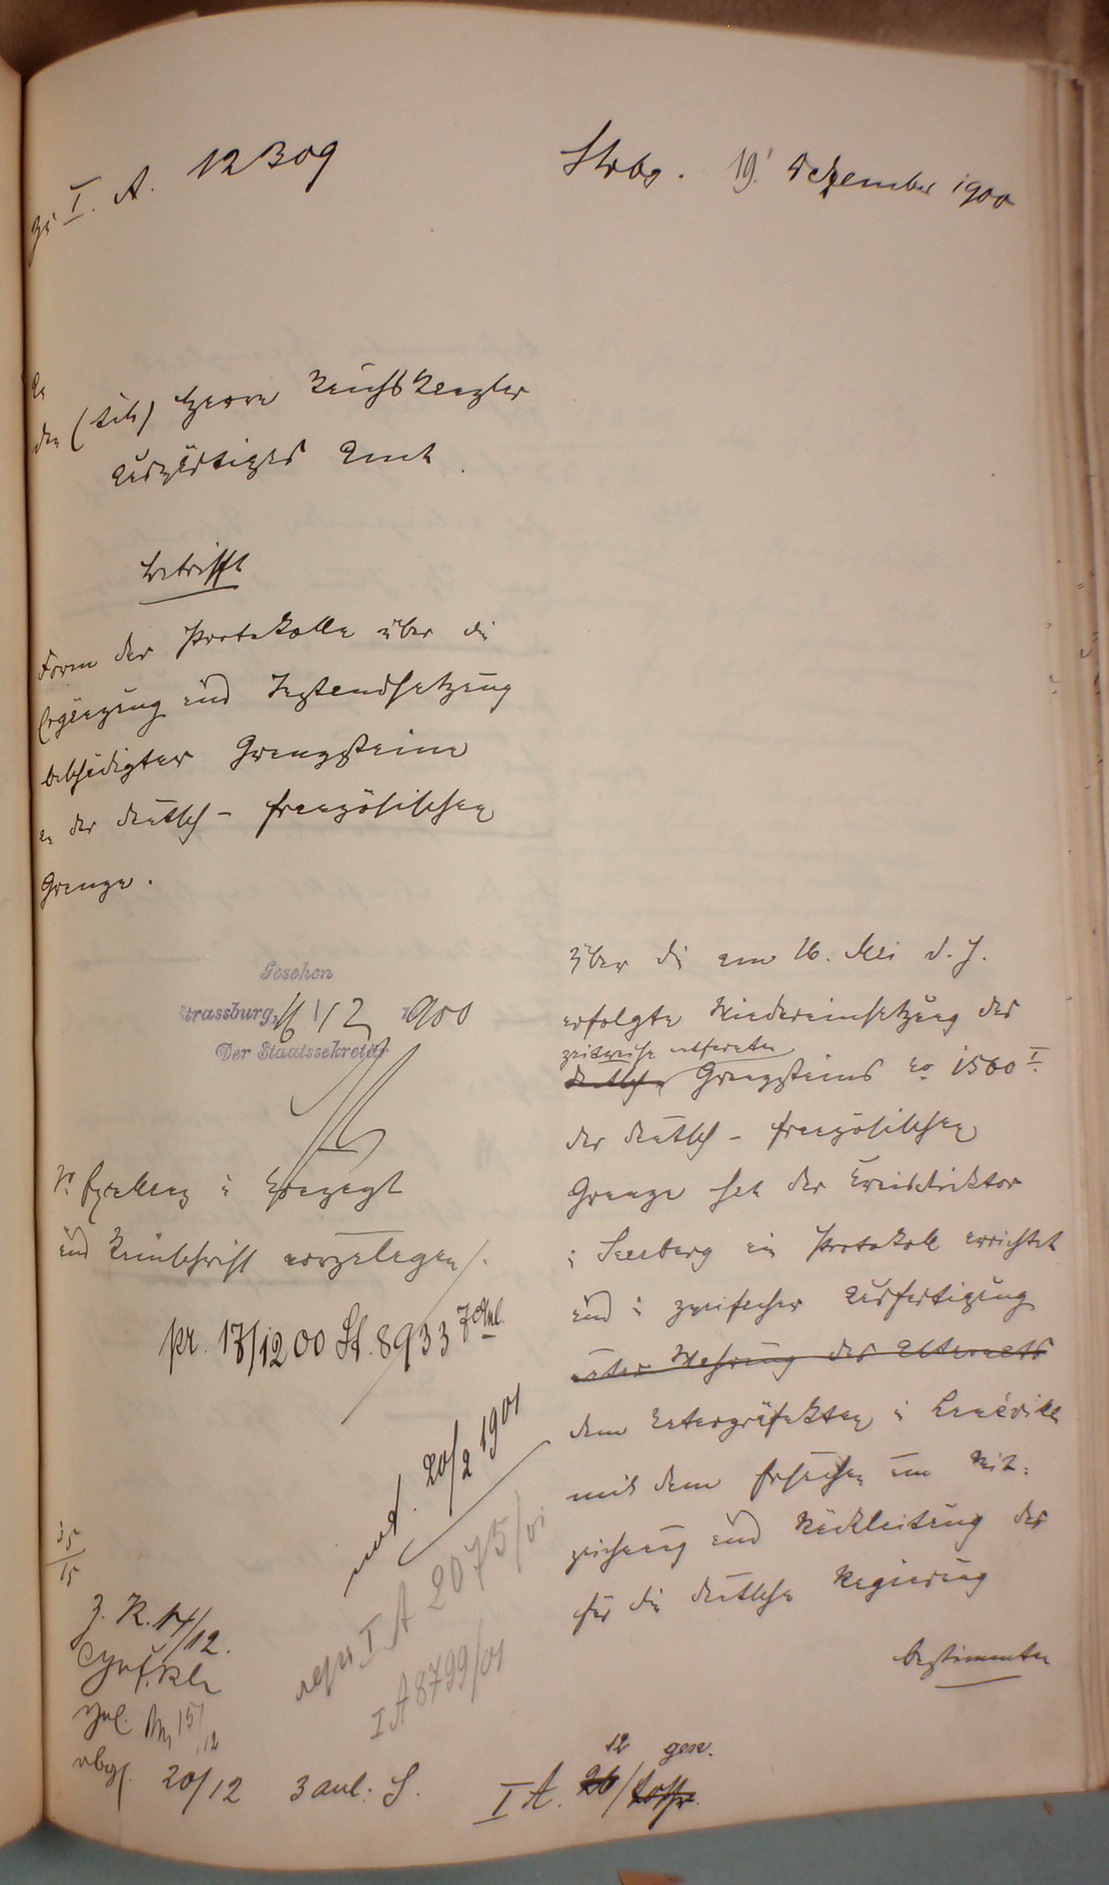 zu I. A. 12309
Strbg. 19. Dezember 1900
An
den (tit.) Herrn Reichskanzler
Auswärtiges Amt.
betrifft
Form der Protokolle über die
Ergänzung und Instandsetzung
beschädigter Grenzsteine
an der deutsch-französischen
Grenze.
Gesehen
Strassburg, 16/12 1900
Der Staatssekretär
in
und Reinschrift vorzulegen.
pr. 17/12 00 St. 8933 7 Anl.
not. 20/2 1901
repr. I A 2075/01
I A 8799/01
15
z. K. 17/12.
gel. 15/12
abges. 20/12 3 anl. S.
Über die am 16. Mai d. J.
erfolgte Wiedereinsetzung des
zeitweise entfernten
deutschen Grenzsteins No 1560 I.
der deutsch-französischen
Grenze hat der Kreisdirektor
in Saarburg ein Protokoll errichtet
und in zweifacher Ausfertigung
unter Wahrung des Alternats
dem Unterpräfekten in Lunéville
mit dem Ersuchen um Mit-
zeichnung und Rückleitung des
für die deutsche Regierung
bestimmten
I A. 12 gen.